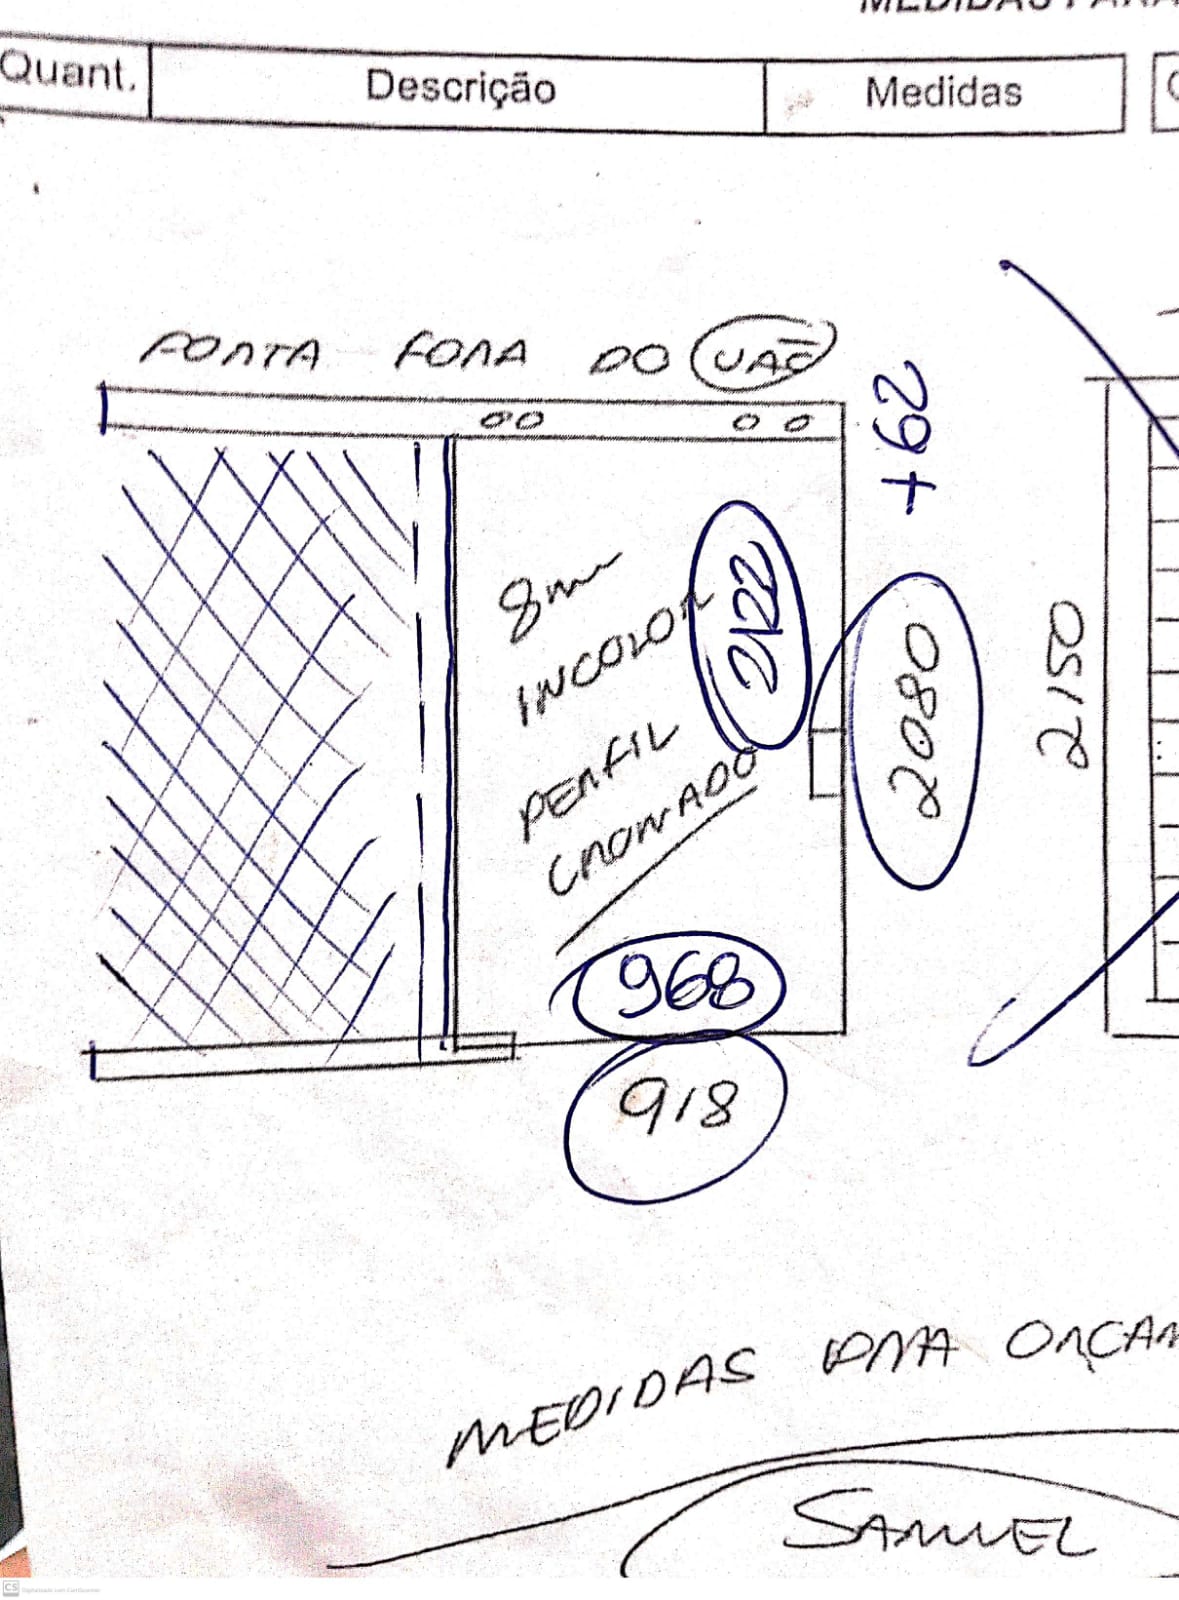 Quant.
Descrição
Medidas
PORTA FORA DO VÃO
+62
8mm
INCOLOR
2122
PERFIL
CROMADO
2080
2150
968
918
MEDIDAS PARA ORÇAM
SAMUEL
CS Digitalizado com CamScanner